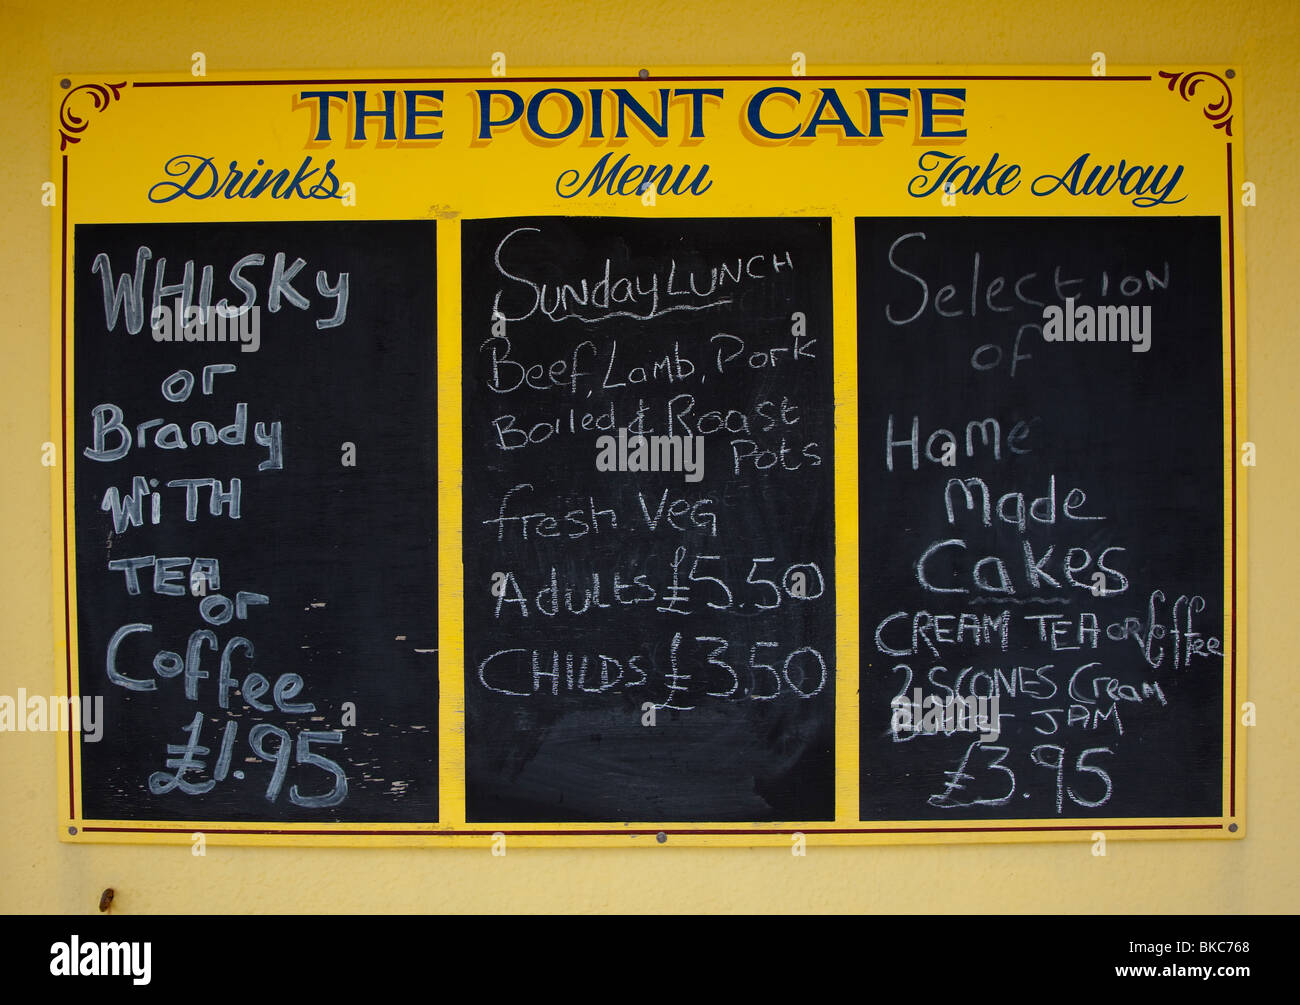 THE POINT CAFE
Drinks
WHISKy
or
Brandy
WiTH
TEA
or
Coffee
£1.95
Menu
Sunday LUNCH
Beef, Lamb, Pork
Boiled & Roast
Pots
fresh Veg
Adults £5.50
CHILDS £3.50
Take Away
Selection
of
Home
Made
Cakes
CREAM TEA OR Coffee
2 SCONES Cream
Butter JAM
£3.95
alamy
Image ID: BKC768
www.alamy.com